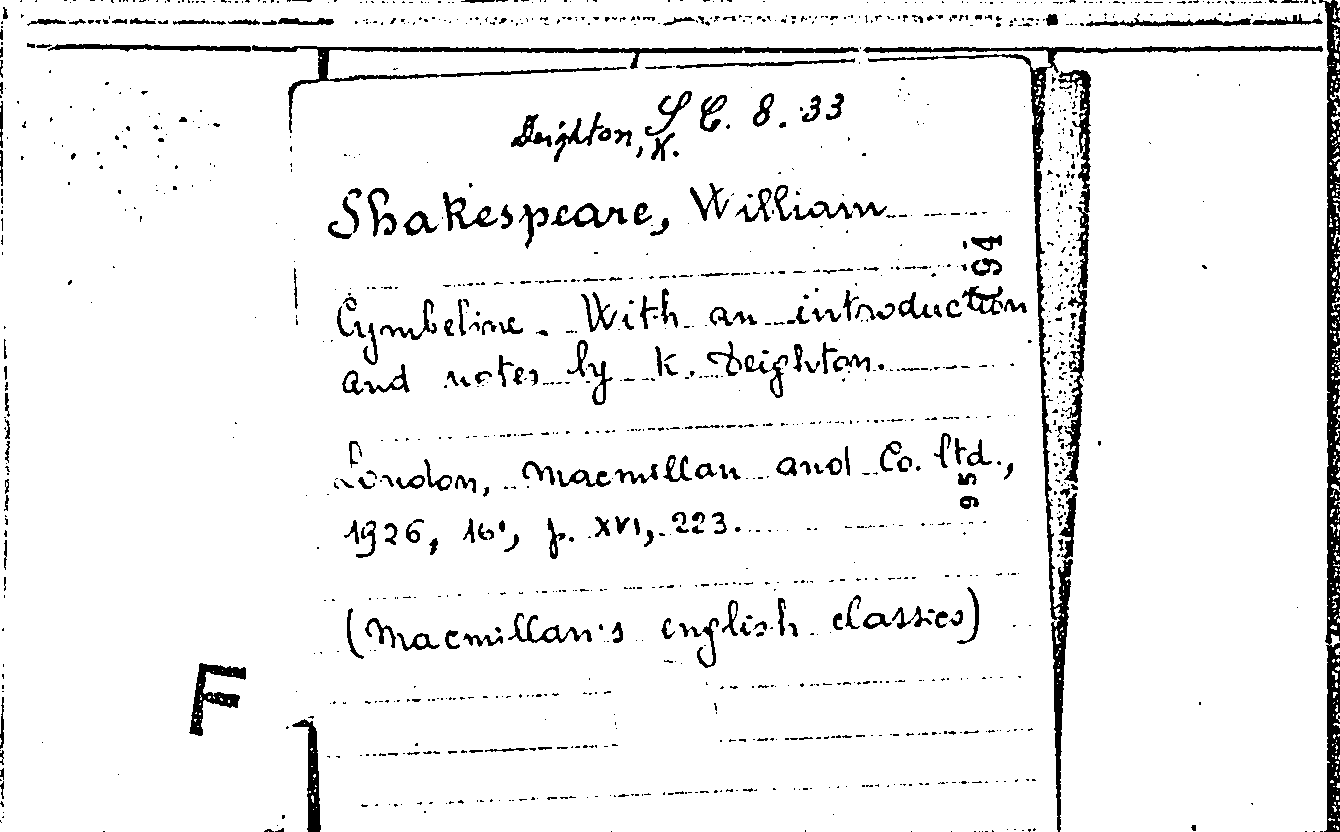 S C. 8. 33
Deighton, K.
Shakespeare, William
194
Cymbeline. With an introduction
and notes by K. Deighton.
London, Macmillan and Co. ltd.,
95
1926, 16°, p. XVI, 223.
(Macmillan's english classics)
F